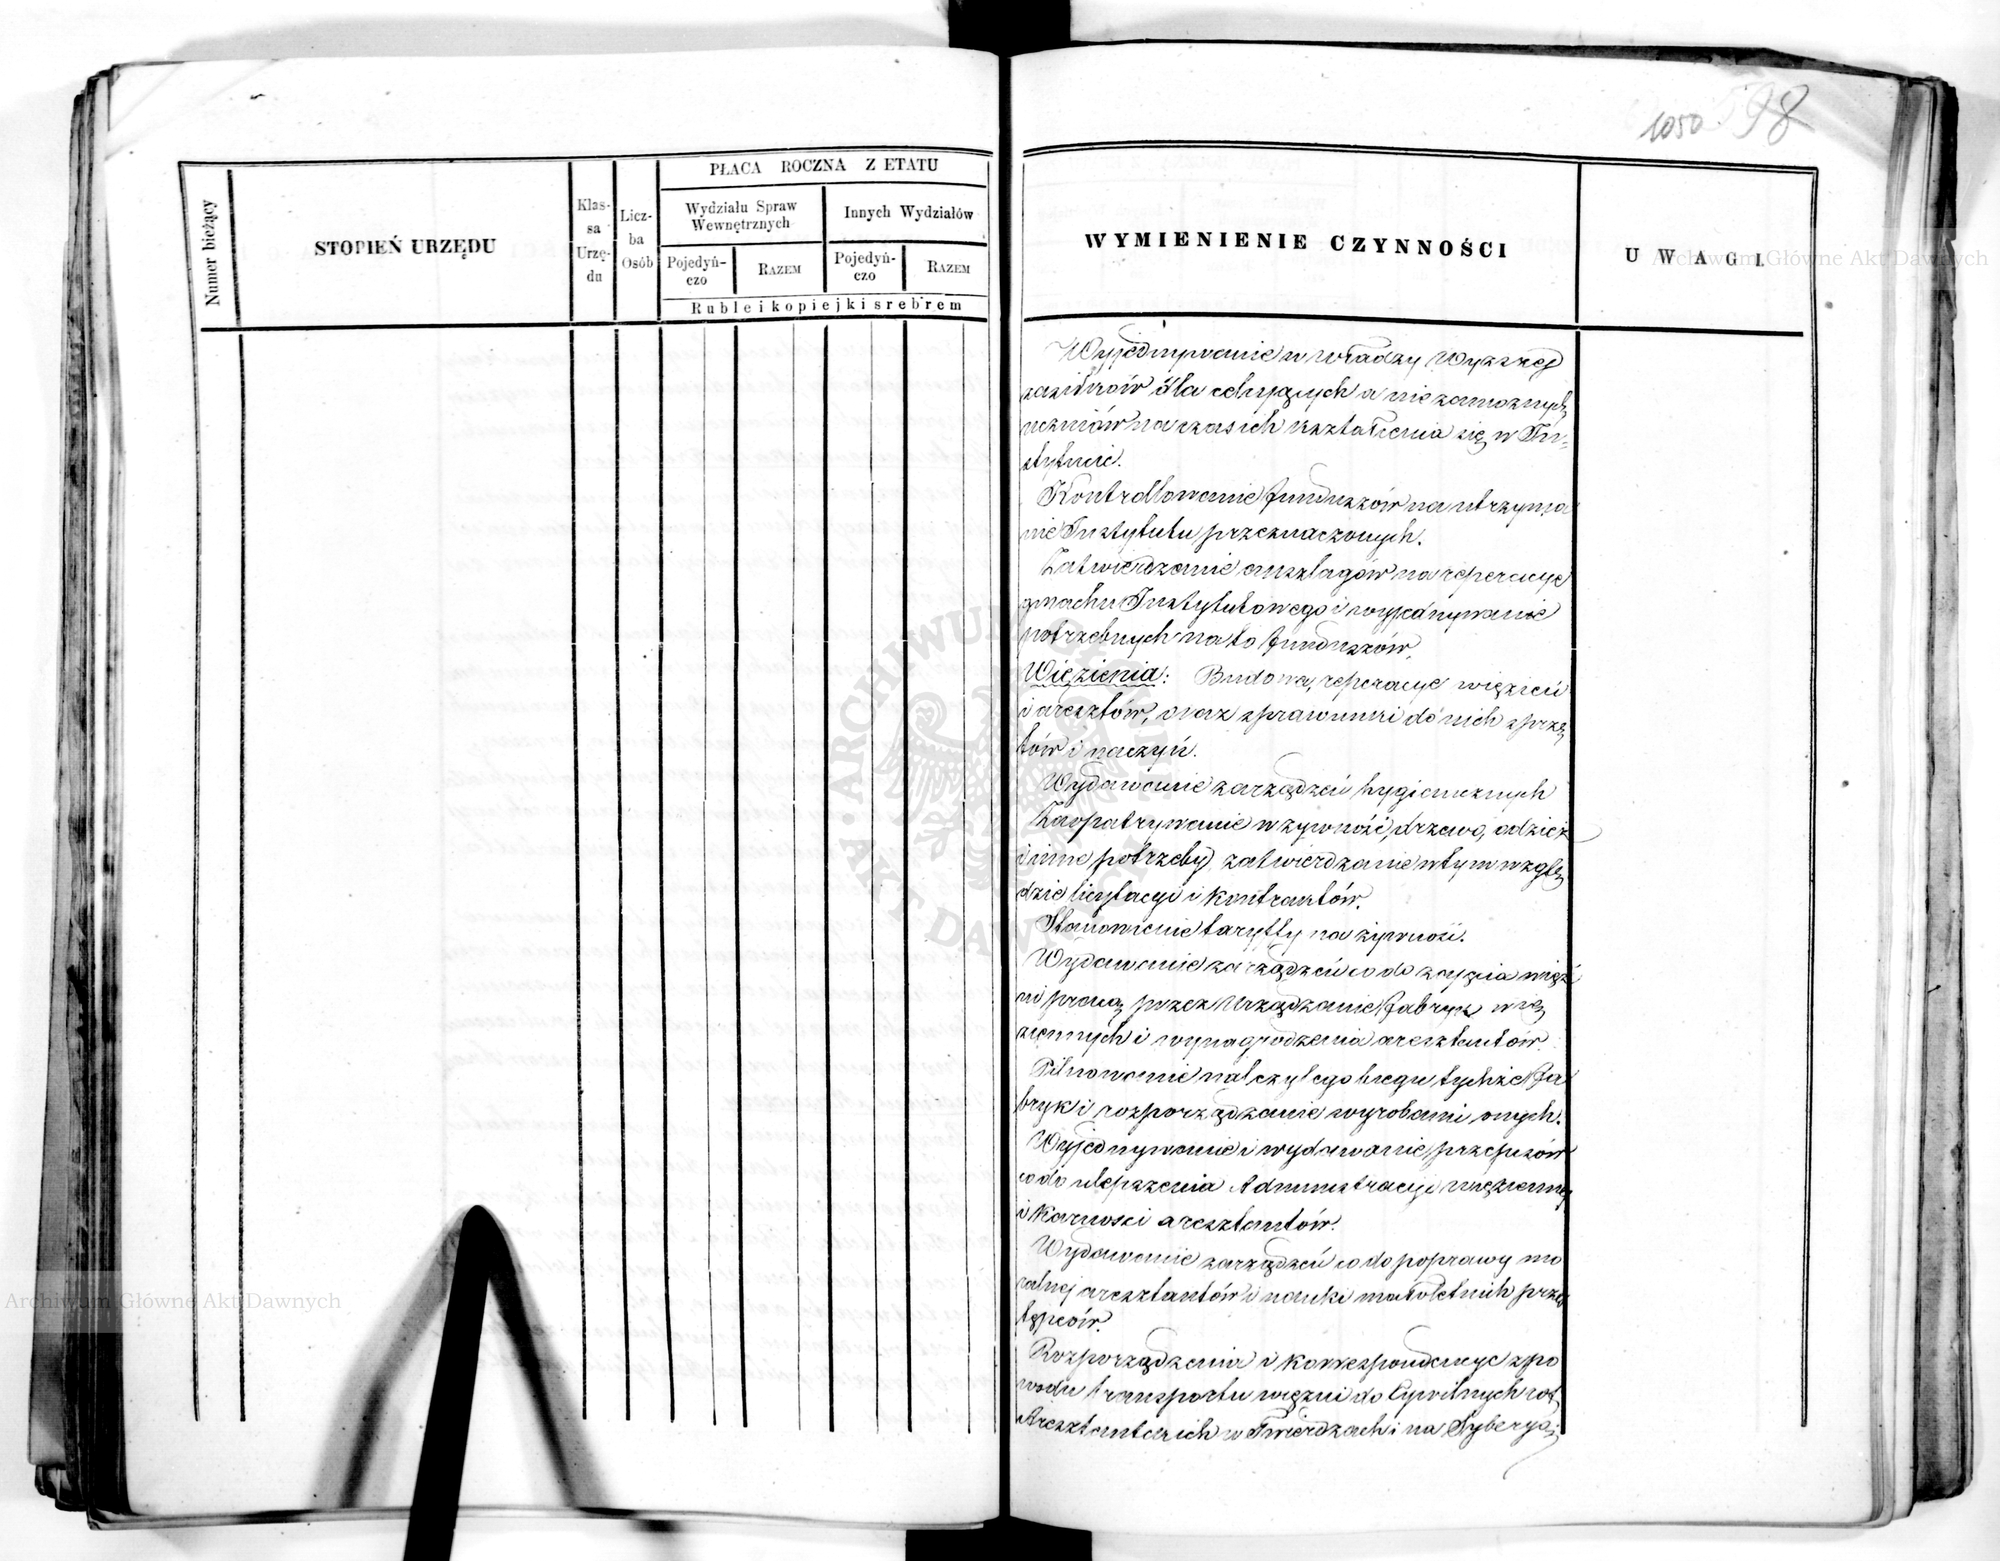 1050 598
Numer bieżący
STOPIEŃ URZĘDU
Klas-
sa
Urzę-
du
Licz-
ba
Osób
PŁACA ROCZNA Z ETATU
Wydziału Spraw
Wewnętrznych
Innych Wydziałów
Pojedyń-
czo
RAZEM
Pojedyń-
czo
RAZEM
Ruble i kopiejki srebrem
WYMIENIENIE CZYNNOŚCI
UWAGI.
Wyjednywanie u władzy Wyższej
zasiłków dla celujących a niezamożnych
uczniów na czas ich kształcenia się w In-
stytucie.
Kontrollowanie funduszów na utrzyma
nie Instytutu przeznaczonych.
Zatwierdzanie anszlagów na reperacye
gmachu Instytutowego i wyjednywanie
potrzebnych na to funduszów.
Więzienia: Budowa, reperacye więzień
i aresztów, oraz sprawunki do nich sprzę
tów i naczyń.
Wydawanie zarządzeń hygienicznych
Zaopatrywanie w żywność, drzewo, odzież
i inne potrzeby, zatwierdzanie w tym wzglę
dzie licytacyi i kontraktów.
Stanowienie taryffy na żywność.
Wydawanie zarządzeń co do zajęcia więź
ni pracą przez urządzanie fabryk wię
ziennych i wynagrodzenia aresztantów.
Pilnowanie należytego biegu tychże fa
bryk i rozporządzanie wyrobami onych.
Wyjednywanie i wydawanie przepisów
co do ulepszenia Administracyi więziennej
i karności aresztantów.
Wydawanie zarządzeń co do poprawy mo
ralnej aresztantów i nauki małoletnich przes
tępców.
Rozporządzenia i korrespondencye z po
wodu transportu więźni do Cywilnych rot
Aresztanckich w Twierdzach i na Syberyą;
Archiwum Główne Akt Dawnych
Archiwum Główne Akt Dawnych
ARCHIWUM GŁÓWNE AKT DAWNYCH